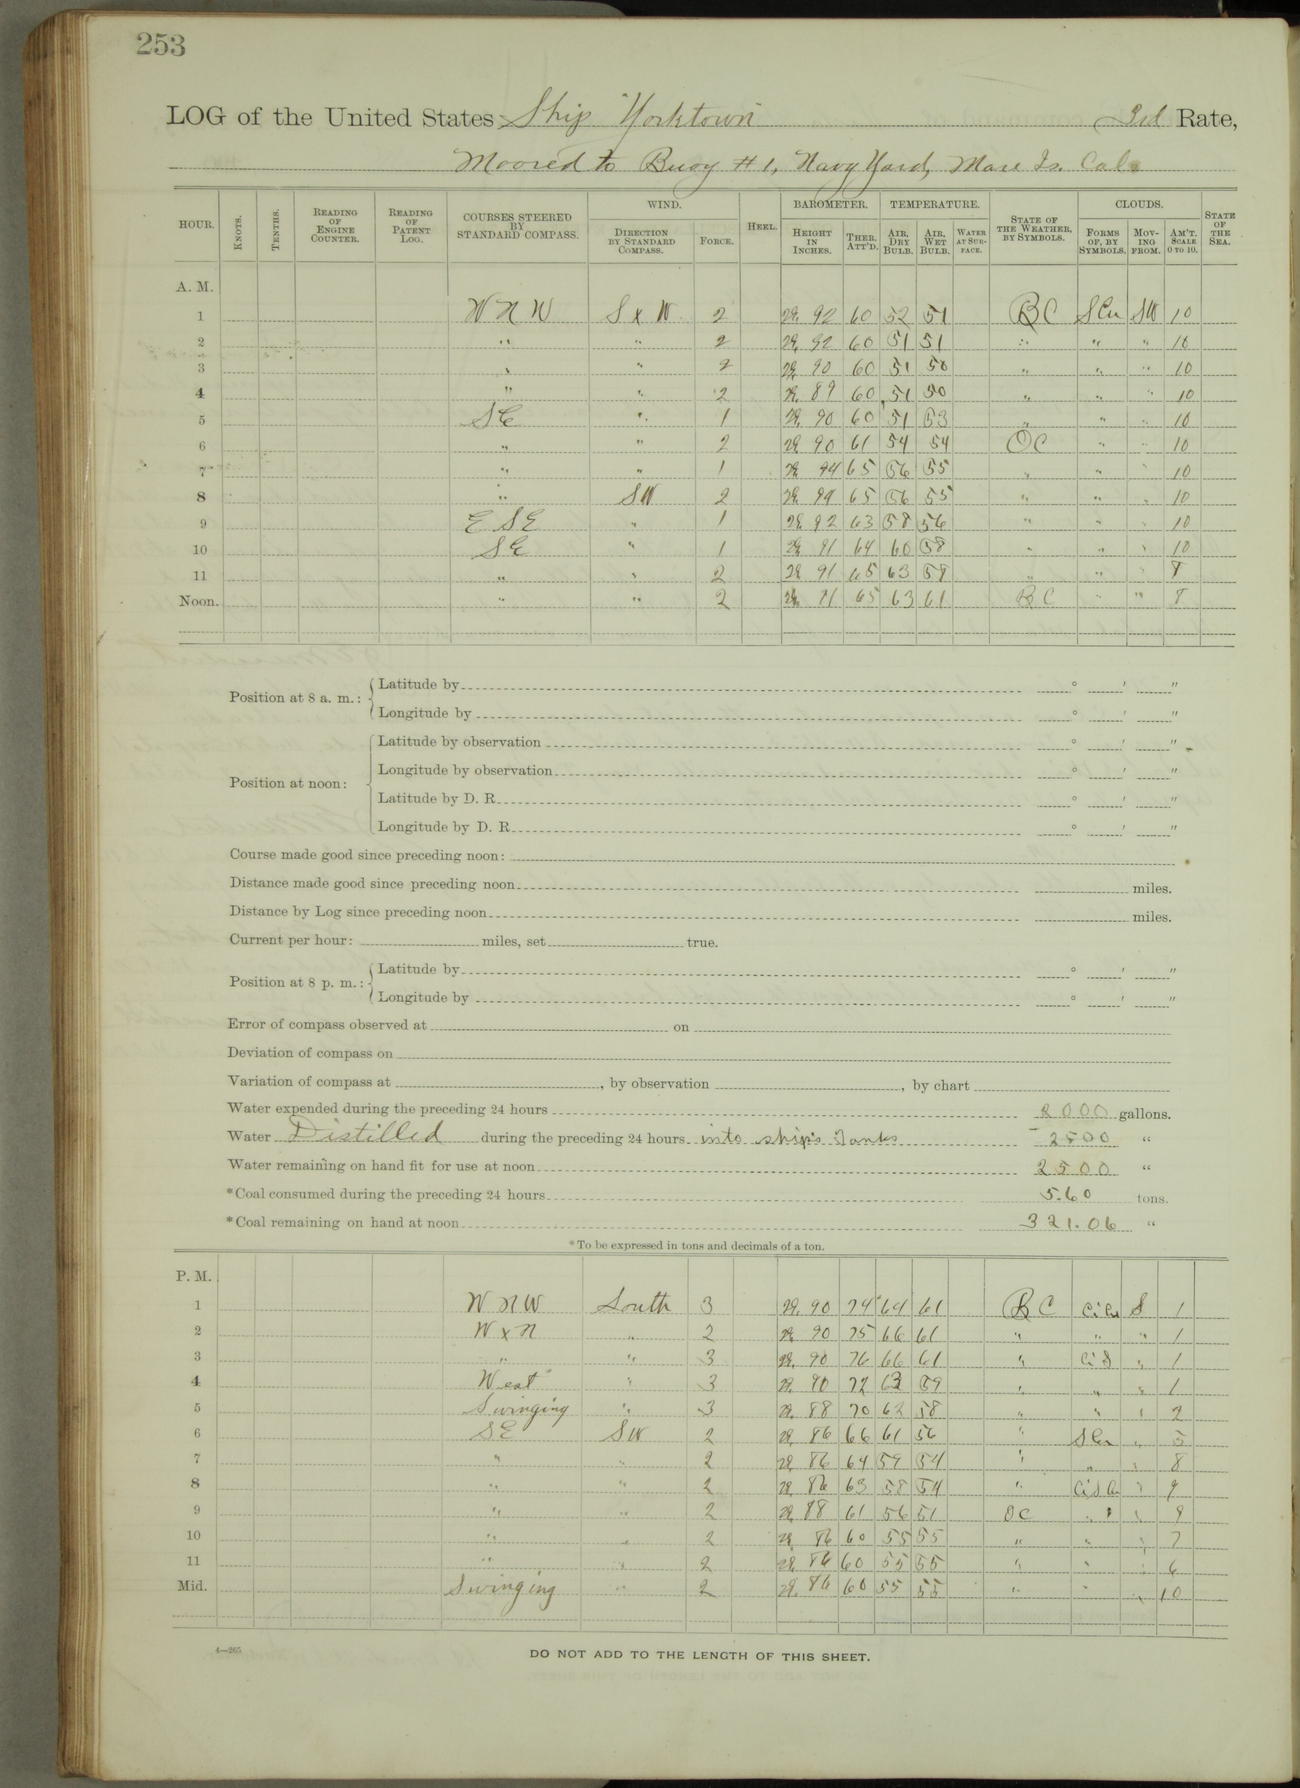 253
LOG of the United States Ship "Yorktown" 3rd Rate,
Moored to Buoy #1, Navy Yard, Mare Is. Cal.
HOUR. KNOTS. TENTHS. READING OF ENGINE COUNTER. READING OF PATENT LOG. COURSES STEERED BY STANDARD COMPASS. WIND. DIRECTION BY STANDARD COMPASS. FORCE. HEEL. BAROMETER. HEIGHT IN INCHES. THER. ATT'D. TEMPERATURE. AIR, DRY BULB. AIR, WET BULB. WATER AT SURFACE. STATE OF THE WEATHER, BY SYMBOLS. CLOUDS. FORMS OF, BY SYMBOLS. MOVING FROM. AM'T. SCALE 0 TO 10. STATE OF THE SEA.
A. M.
1 WNW S x W 2 29.92 60 52 51 BC SCu SW 10
2 " " 2 29.92 60 51 51 " " " 10
3 " " 2 29.90 60 51 50 " " " 10
4 " " 2 29.89 60 51 50 " " " 10
5 SE " 1 29.90 60 51 53 " " " 10
6 " " 2 29.90 61 54 54 OC " " 10
7 " " 1 29.94 65 56 55 " " " 10
8 " SW 2 29.94 65 56 55 " " " 10
9 ESE " 1 29.92 63 58 56 " " " 10
10 SE " 1 29.91 64 60 58 " " " 10
11 " " 2 29.91 65 63 59 " " " 8
Noon. " " 2 29.91 65 63 61 BC " " 8
Position at 8 a. m.: Latitude by ° ' "
Longitude by ° ' "
Position at noon: Latitude by observation ° ' "
Longitude by observation ° ' "
Latitude by D. R. ° ' "
Longitude by D. R. ° ' "
Course made good since preceding noon:
Distance made good since preceding noon miles.
Distance by Log since preceding noon miles.
Current per hour: miles, set true.
Position at 8 p. m.: Latitude by ° ' "
Longitude by ° ' "
Error of compass observed at on
Deviation of compass on
Variation of compass at , by observation , by chart
Water expended during the preceding 24 hours 2000 gallons.
Water Distilled during the preceding 24 hours into ship's Tanks 2500 "
Water remaining on hand fit for use at noon 2500 "
*Coal consumed during the preceding 24 hours 5.60 tons.
*Coal remaining on hand at noon 321.06 "
*To be expressed in tons and decimals of a ton.
P. M.
1 WNW South 3 29.90 74 64 61 BC CiCu S 1
2 W x N " 2 29.90 75 66 61 " " " 1
3 " " 3 29.90 76 66 61 " CiS " 1
4 West " 3 29.90 72 63 59 " " " 1
5 Swinging " 3 29.88 70 62 58 " " " 2
6 SE SW 2 29.86 66 61 56 " SCu " 5
7 " " 2 29.86 64 59 54 " " " 8
8 " " 2 29.86 63 58 54 " CiSCu " 9
9 " " 2 29.88 61 56 51 OC " " 9
10 " " 2 29.86 60 55 55 " " " 7
11 " " 2 29.86 60 55 55 " " " 6
Mid. Swinging " 2 29.86 60 55 55 " " " 10
4—265
DO NOT ADD TO THE LENGTH OF THIS SHEET.